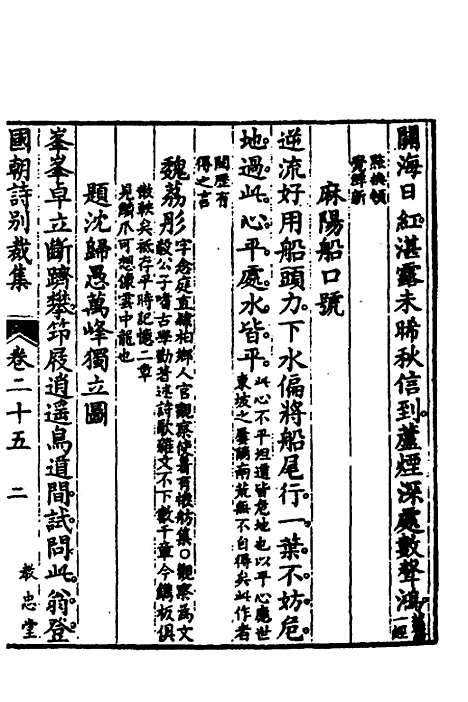 關海日紅湛露未晞秋信到蘆煙深處數聲鴻一經
點換頓
覺鮮新
麻陽船口號
逆流好用船頭力下水偏將船尾行一葉不妨危
地過此心平處水皆平此心不平坦道皆危地也以平心處世
東坡之屢竄南荒無不自得矣此作者
閱歷有
得之言
魏荔彤字念庭直隸柏鄉人官觀察使著有懷舫集○觀察為文
毅公子嗜古學勤著述詩歌雜文不下數千章今鐫板俱
散軼矣祗存平時記憶二章
見鱗爪可想像雲中龍也
題沈歸愚萬峰獨立圖
峯峯卓立斷躋攀笻屐逍遙鳥道間試問此翁登
國朝詩別裁集 卷二十五 二 教忠堂